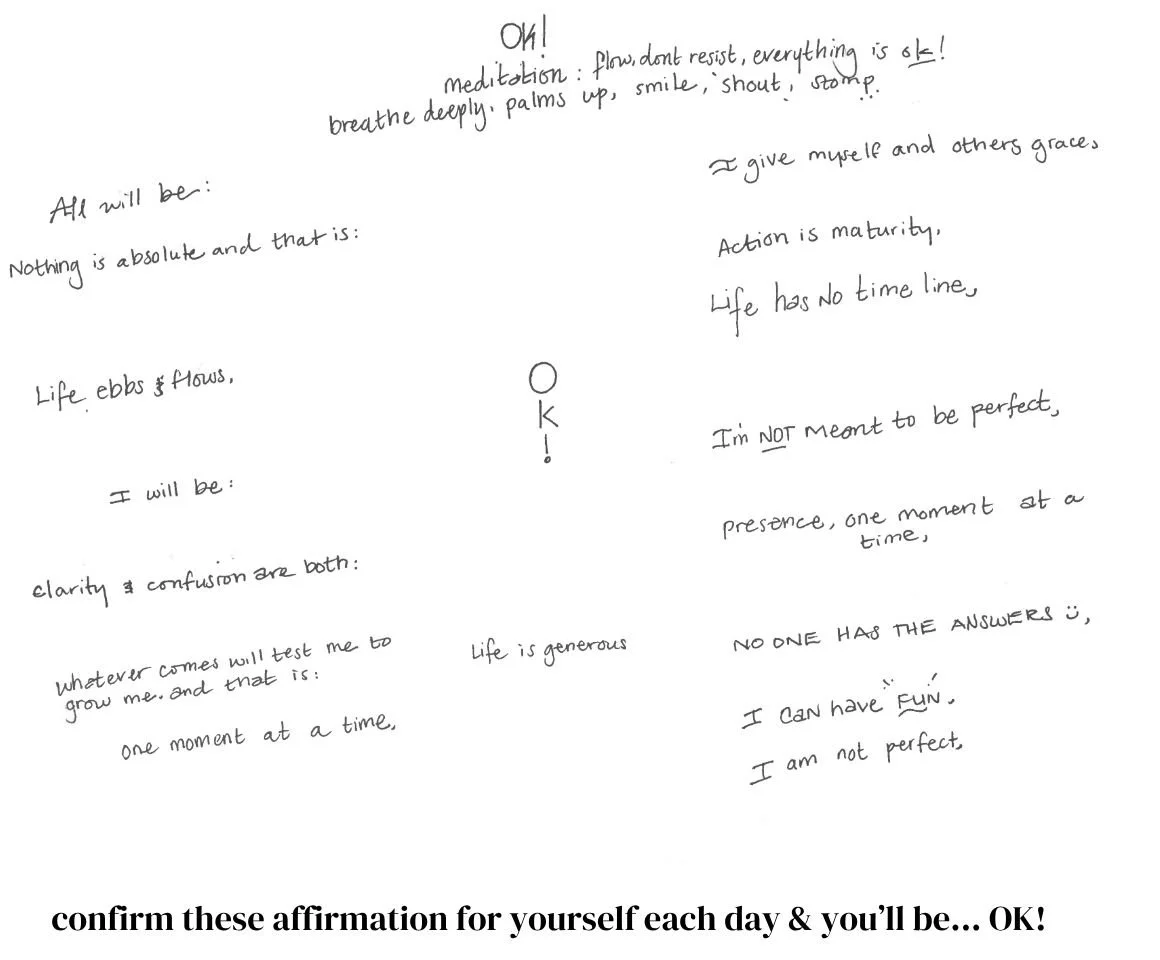 OK!
meditation: flow, dont resist, everything is ok!
breathe deeply. palms up, smile, shout, stomp...
I give myself and others grace,
All will be:
Nothing is absolute and that is:
Action is maturity,
Life has No time line,
Life ebbs & flows,
O
K
!
I'm NOT meant to be perfect,
I will be:
presence, one moment at a
time,
clarity & confusion are both:
whatever comes will test me to
grow me. and that is:
Life is generous
NO ONE HAS THE ANSWERS Ü,
I CAN have "FUN".
one moment at a time,
I am not perfect,
confirm these affirmation for yourself each day & you'll be... OK!